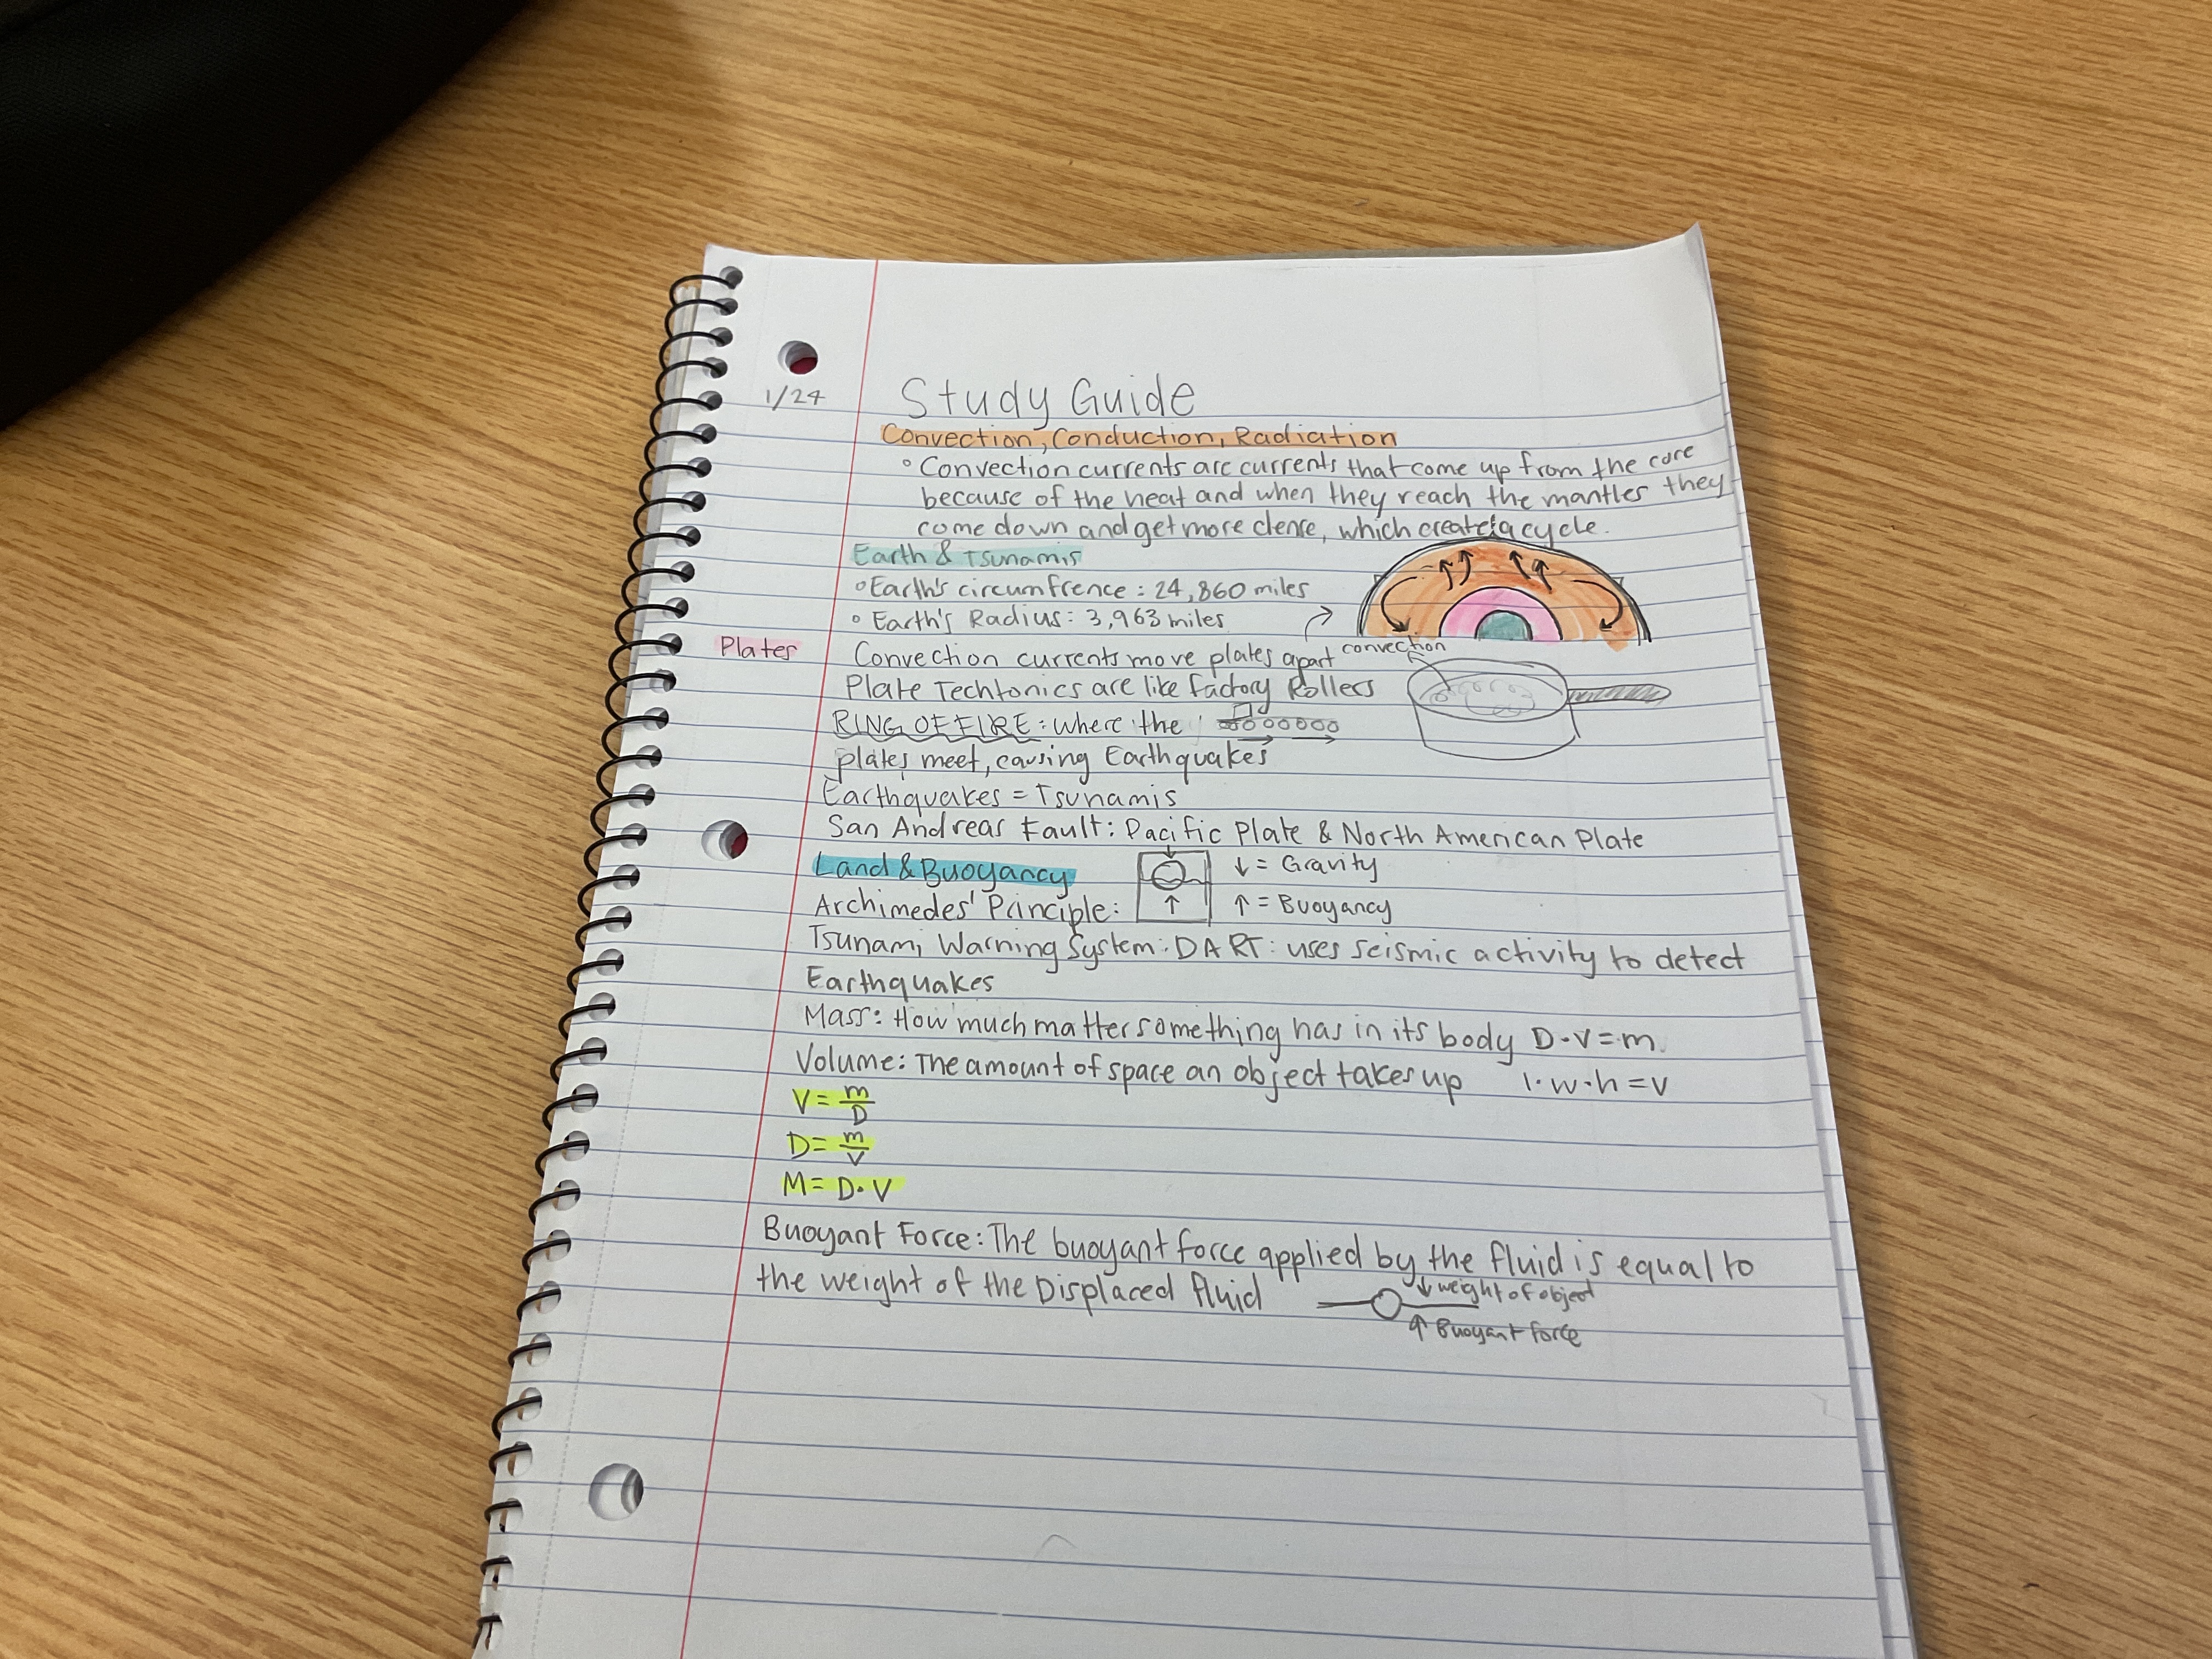 1/24
Study Guide
Convection, Conduction, Radiation
° Convection currents are currents that come up from the core
because of the heat and when they reach the mantles they
come down and get more dense, which create a cycle.
Earth & Tsunamis
° Earth's circumfrence : 24,860 miles
° Earth's Radius: 3,963 miles
Plates
Convection currents move plates apart
convection
Plate Techtonics are like factory Rollers
RING OF FIRE: where the
plates meet, causing Earthquakes
Earthquakes = Tsunamis
San Andreas Fault: Pacific Plate & North American Plate
Land & Buoyancy
↓ = Gravity
Archimedes' Principle:
↑ = Buoyancy
Tsunami Warning System: DART: uses seismic activity to detect
Earthquakes
Mass: How much matter something has in its body D·V=m
Volume: The amount of space an object takes up l·w·h=v
V= m/D
D= m/V
M= D·V
Buoyant Force: The buoyant force applied by the fluid is equal to
the weight of the Displaced fluid
↓ weight of object
↑ Buoyant force